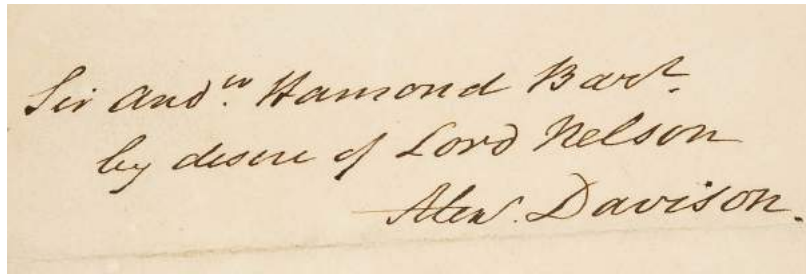 Sir And.w Hamond Bart.
by desire of Lord Nelson
Alexr. Davison.